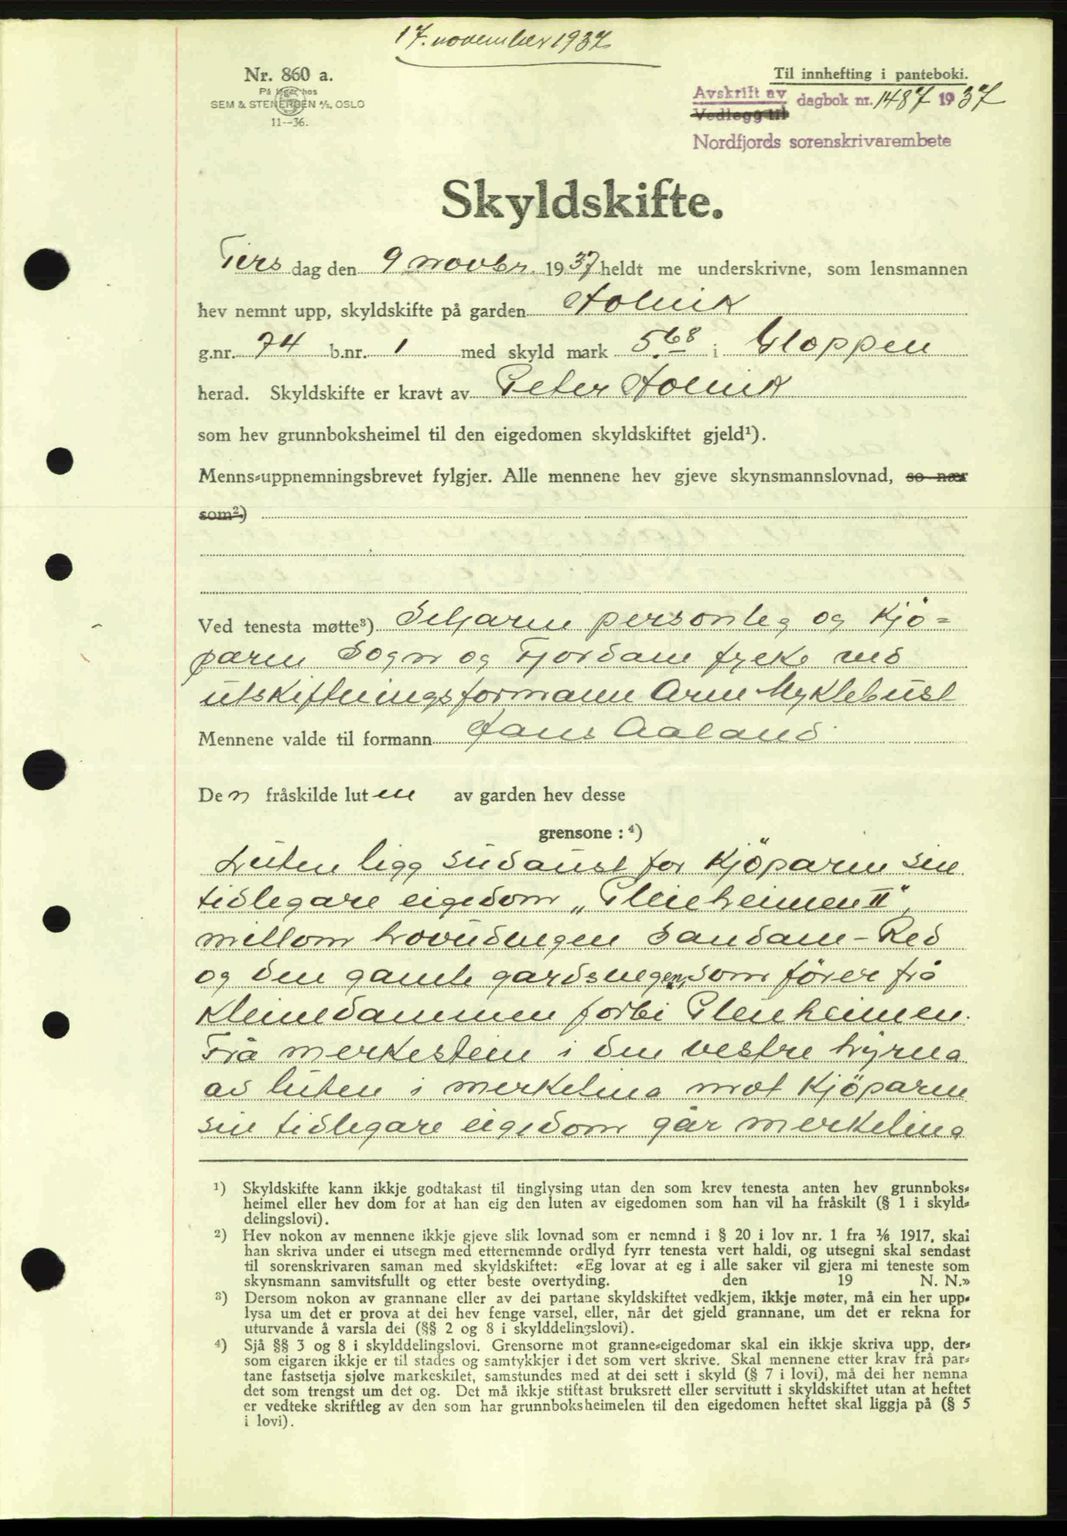 17. november 1937
Nr. 860 a.
På lager hos
SEM & STENERSEN A/S, OSLO
11--36.
Til innhefting i panteboki.
Avskrift av
Vedlegg til dagbok nr. 1487 1937
Nordfjords sorenskrivarembete
Skyldskifte.
Tirsdag den 9 novbr. 1937 heldt me underskrivne, som lensmannen
hev nemnt upp, skyldskifte på garden Holvik
g.nr. 74 b.nr. 1 med skyld mark 5.68 i Gloppen
herad. Skyldskifte er kravt av Peter Holvik
som hev grunnboksheimel til den eigedomen skyldskiftet gjeld¹).
Menns-uppnemningsbrevet fylgjer. Alle mennene hev gjeve skynsmannslovnad, so nær
som²)
Ved tenesta møtte³) Seljaren personleg og kjö=
paren Sogn og Fjordane fylke ved
utskiftningsformann Arne Myklebust
Mennene valde til formann Hans Aaland
Den fråskilde luten av garden hev desse
grensone : ⁴)
Luten ligg sudaust for kjöparen sin
tidlegare eigedom „Pleieheimen II",
millom hovudvegen Sandane - Red
og den gamle gardsvegen, som förer frå
Kleivedammen forbi Pleieheimen.
Frå merkestein i den vestre hyrna
av luten i merkelina mot kjöparen
sin tidlegare eigedom går merkelina
¹) Skyldskifte kann ikkje godtakast til tinglysing utan den som krev tenesta anten hev grunnboks-
heimel eller hev dom for at han eig den luten av eigedomen som han vil ha fråskilt (§ 1 i skyld-
delingslovi).
²) Hev nokon av mennene ikkje gjeve slik lovnad som er nemnd i § 20 i lov nr. 1 fra 1/6 1917, skal
han skriva under ei utsegn med etternemnde ordlyd fyrr tenesta vert haldi, og utsegni skal sendast
til sorenskrivaren saman med skyldskiftet: «Eg lovar at eg i alle saker vil gjera mi teneste som
skynsmann samvitsfullt og etter beste overtyding. den 19 N. N.»
³) Dersom nokon av grannane eller av dei partane skyldskiftet vedkjem, ikkje møter, må ein her upp-
lysa um det er prova at dei hev fenge varsel, eller, når det gjeld grannane, um det er rekna for
uturvande å varsla dei (§§ 2 og 8 i skylddelingslovi).
⁴) Sjå §§ 3 og 8 i skylddelingslovi. Grensorne mot granne-eigedomar skal ein ikkje skriva upp, der-
som eigaren ikkje er til stades og samtykkjer i det som vert skrive. Skal mennene etter krav frå par-
tane fastsetja sjølve markeskilet, samstundes med at dei sett i skyld (§ 7 i lovi), må dei her nemna
det som trengst um det og. Det må ikkje stiftast bruksrett eller servitutt i skyldskiftet utan at heftet
er vedteke skriftleg av den som har grunnboksheimelen til den eigedomen heftet skal liggja på (§ 5
i lovi).